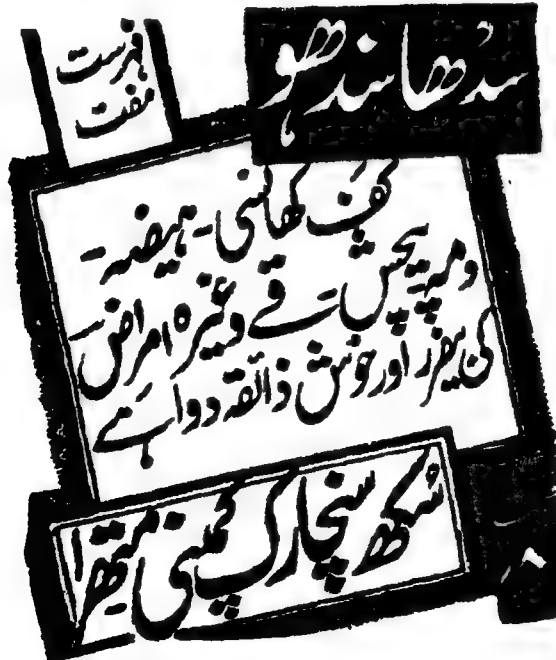 سُدھا سندھو
فہرست
مفت
کف کھانسی - ہیضہ -
دمہ پیچش قے وغیرہ امراض
کی بیضرر اور خوش ذائقہ دوا ہے
سُکھ سنچارک کمپنی متھرا